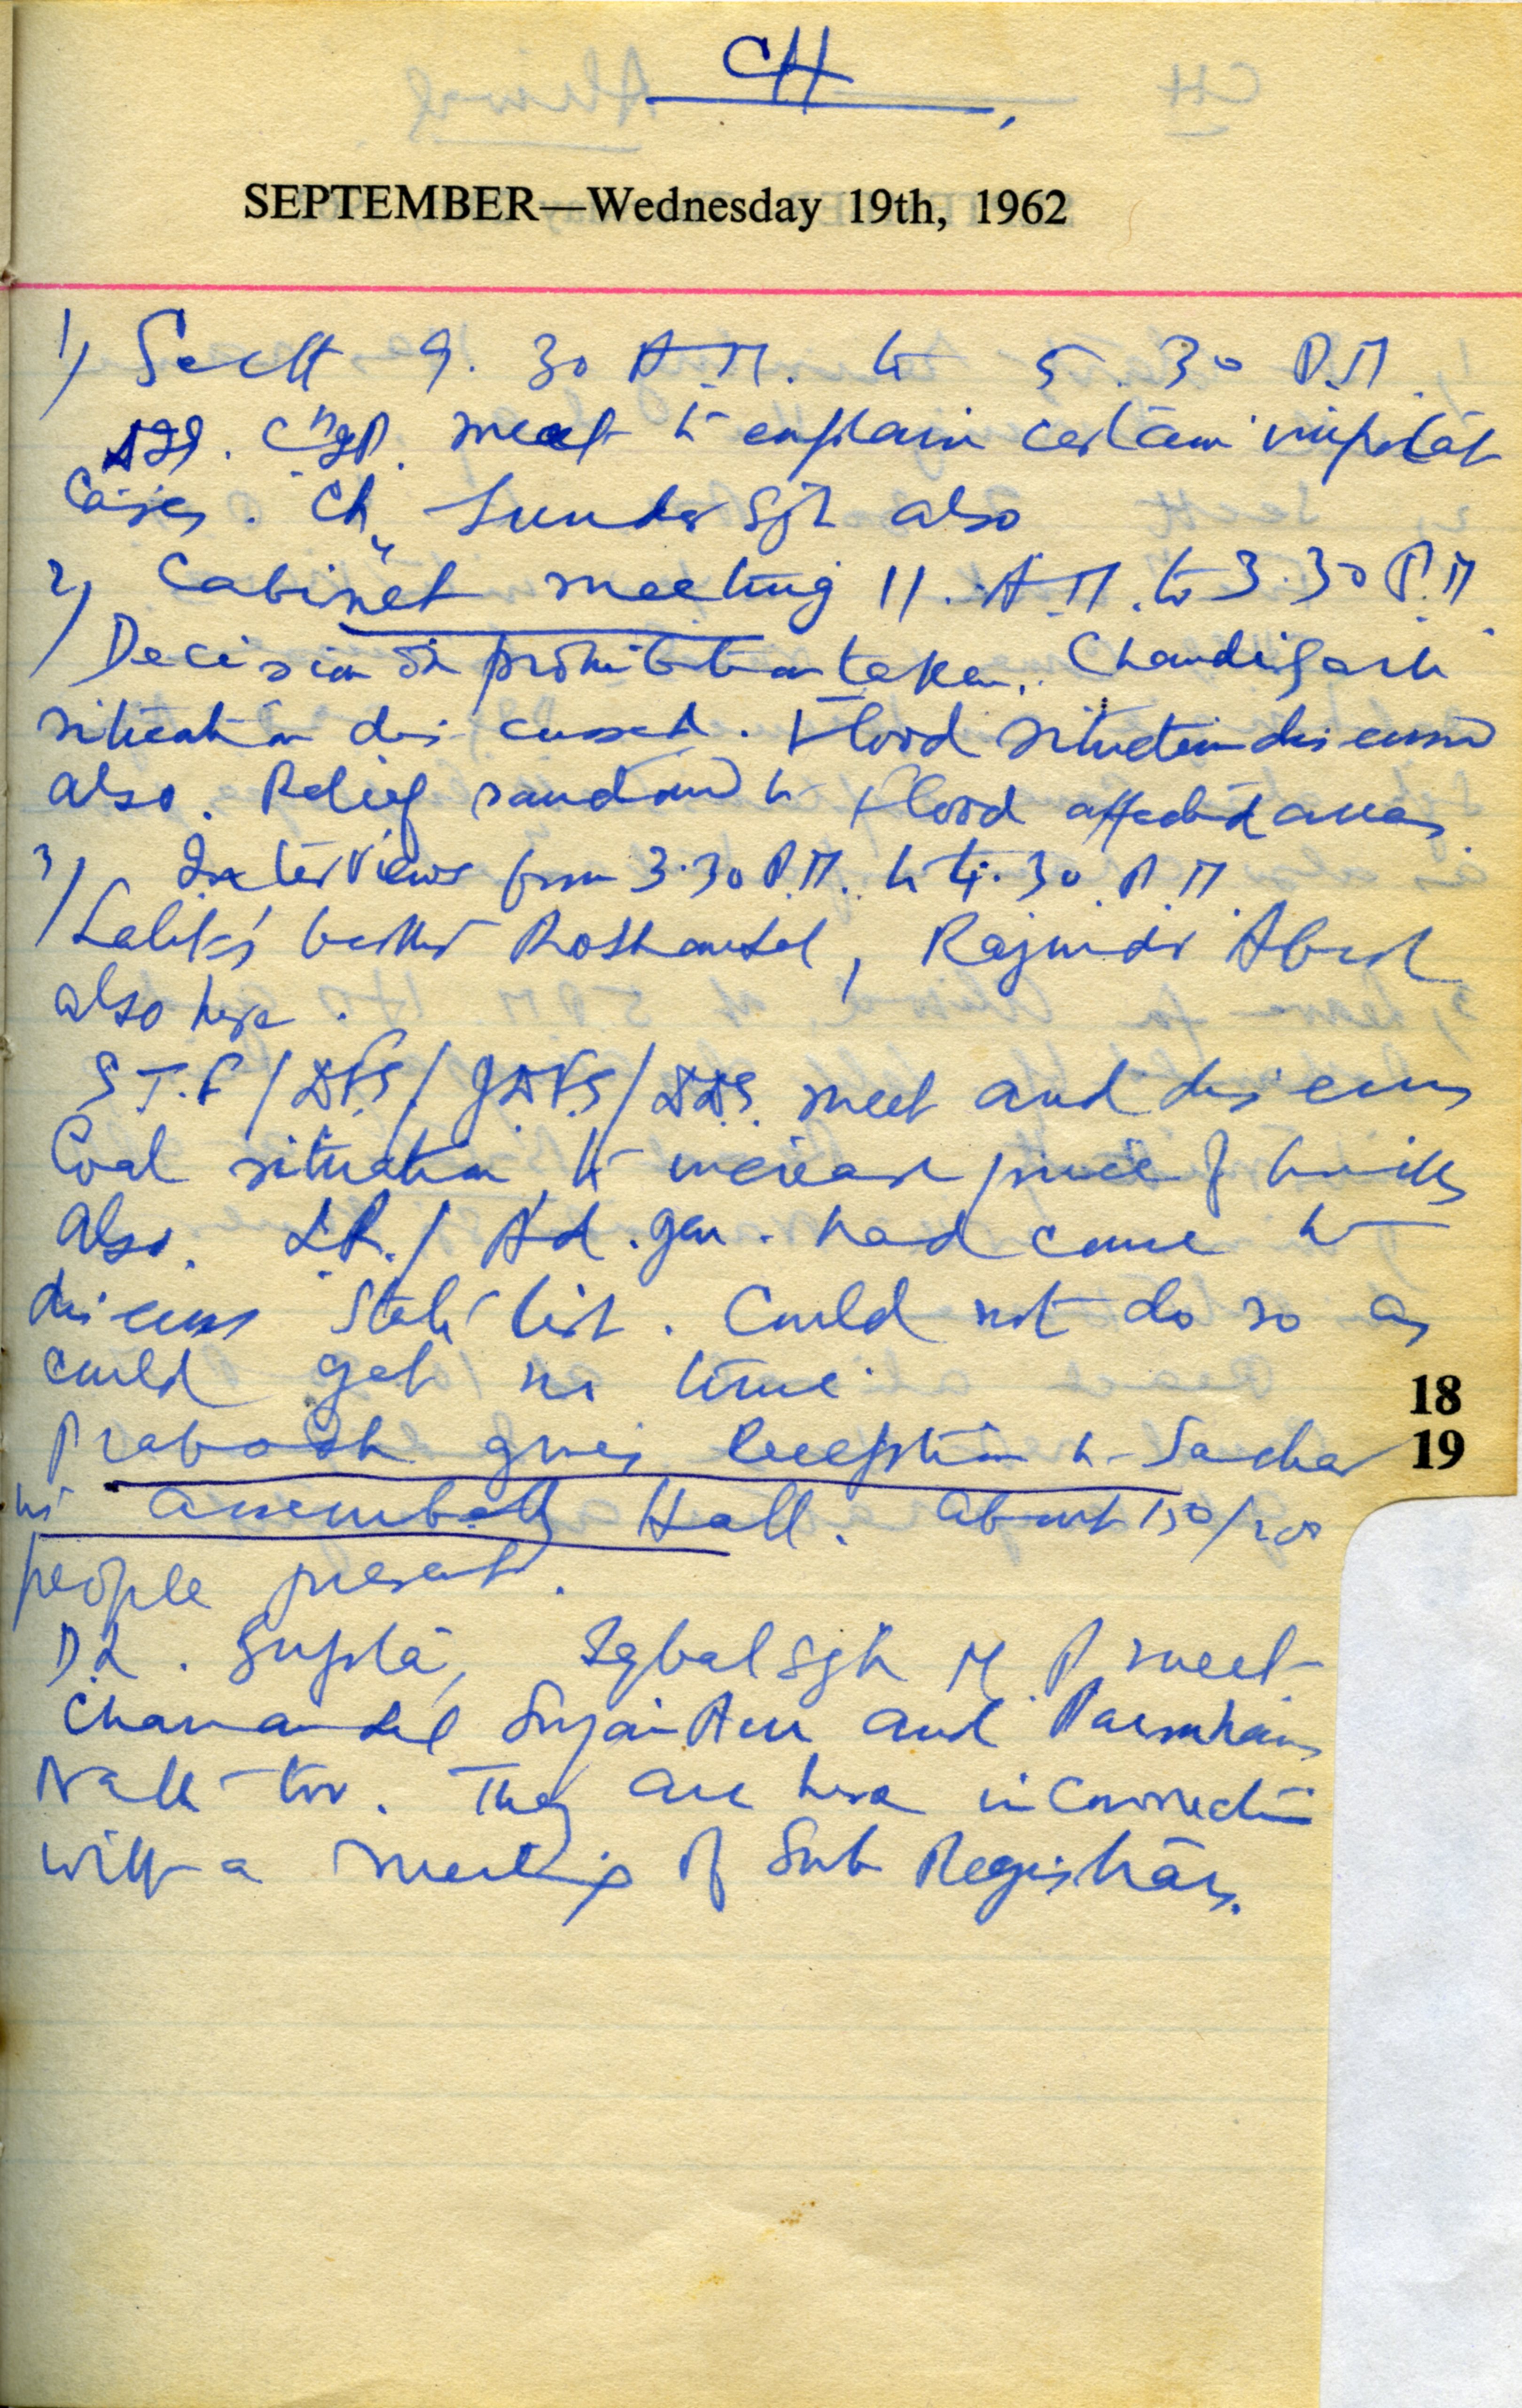 CH
SEPTEMBER—Wednesday 19th, 1962
1) Sectt 9.30 A.M. to 5.30 P.M.
meet to explain certain important
Cases. Ch. Sunder Sgh also
2) Cabinet meeting 11. A.M. to 3.30 P.M.
Decision on prohibition taken. Chandigarh
situation discussed. Flood situation discussed
also. Relief sanctioned to flood affected areas
3) Interviews from 3.30 P.M. to 4.30 P.M.
Roshanlal, Rajinder
also here.
meet and discuss
Coal situation, to increase price of bricks
also. L.R./ Ad. Gen. had come to
discuss list. Could not do so as
could get no time.
Prabodh gives Reception to Sachar
in Assembly Hall. About 150/200
people present.
D.L. Gupta, Iqbal Sgh M.P. meet
Chaman Lal and
Nath too. They are here in connection
with a meeting of Sub Registrars.
18
19